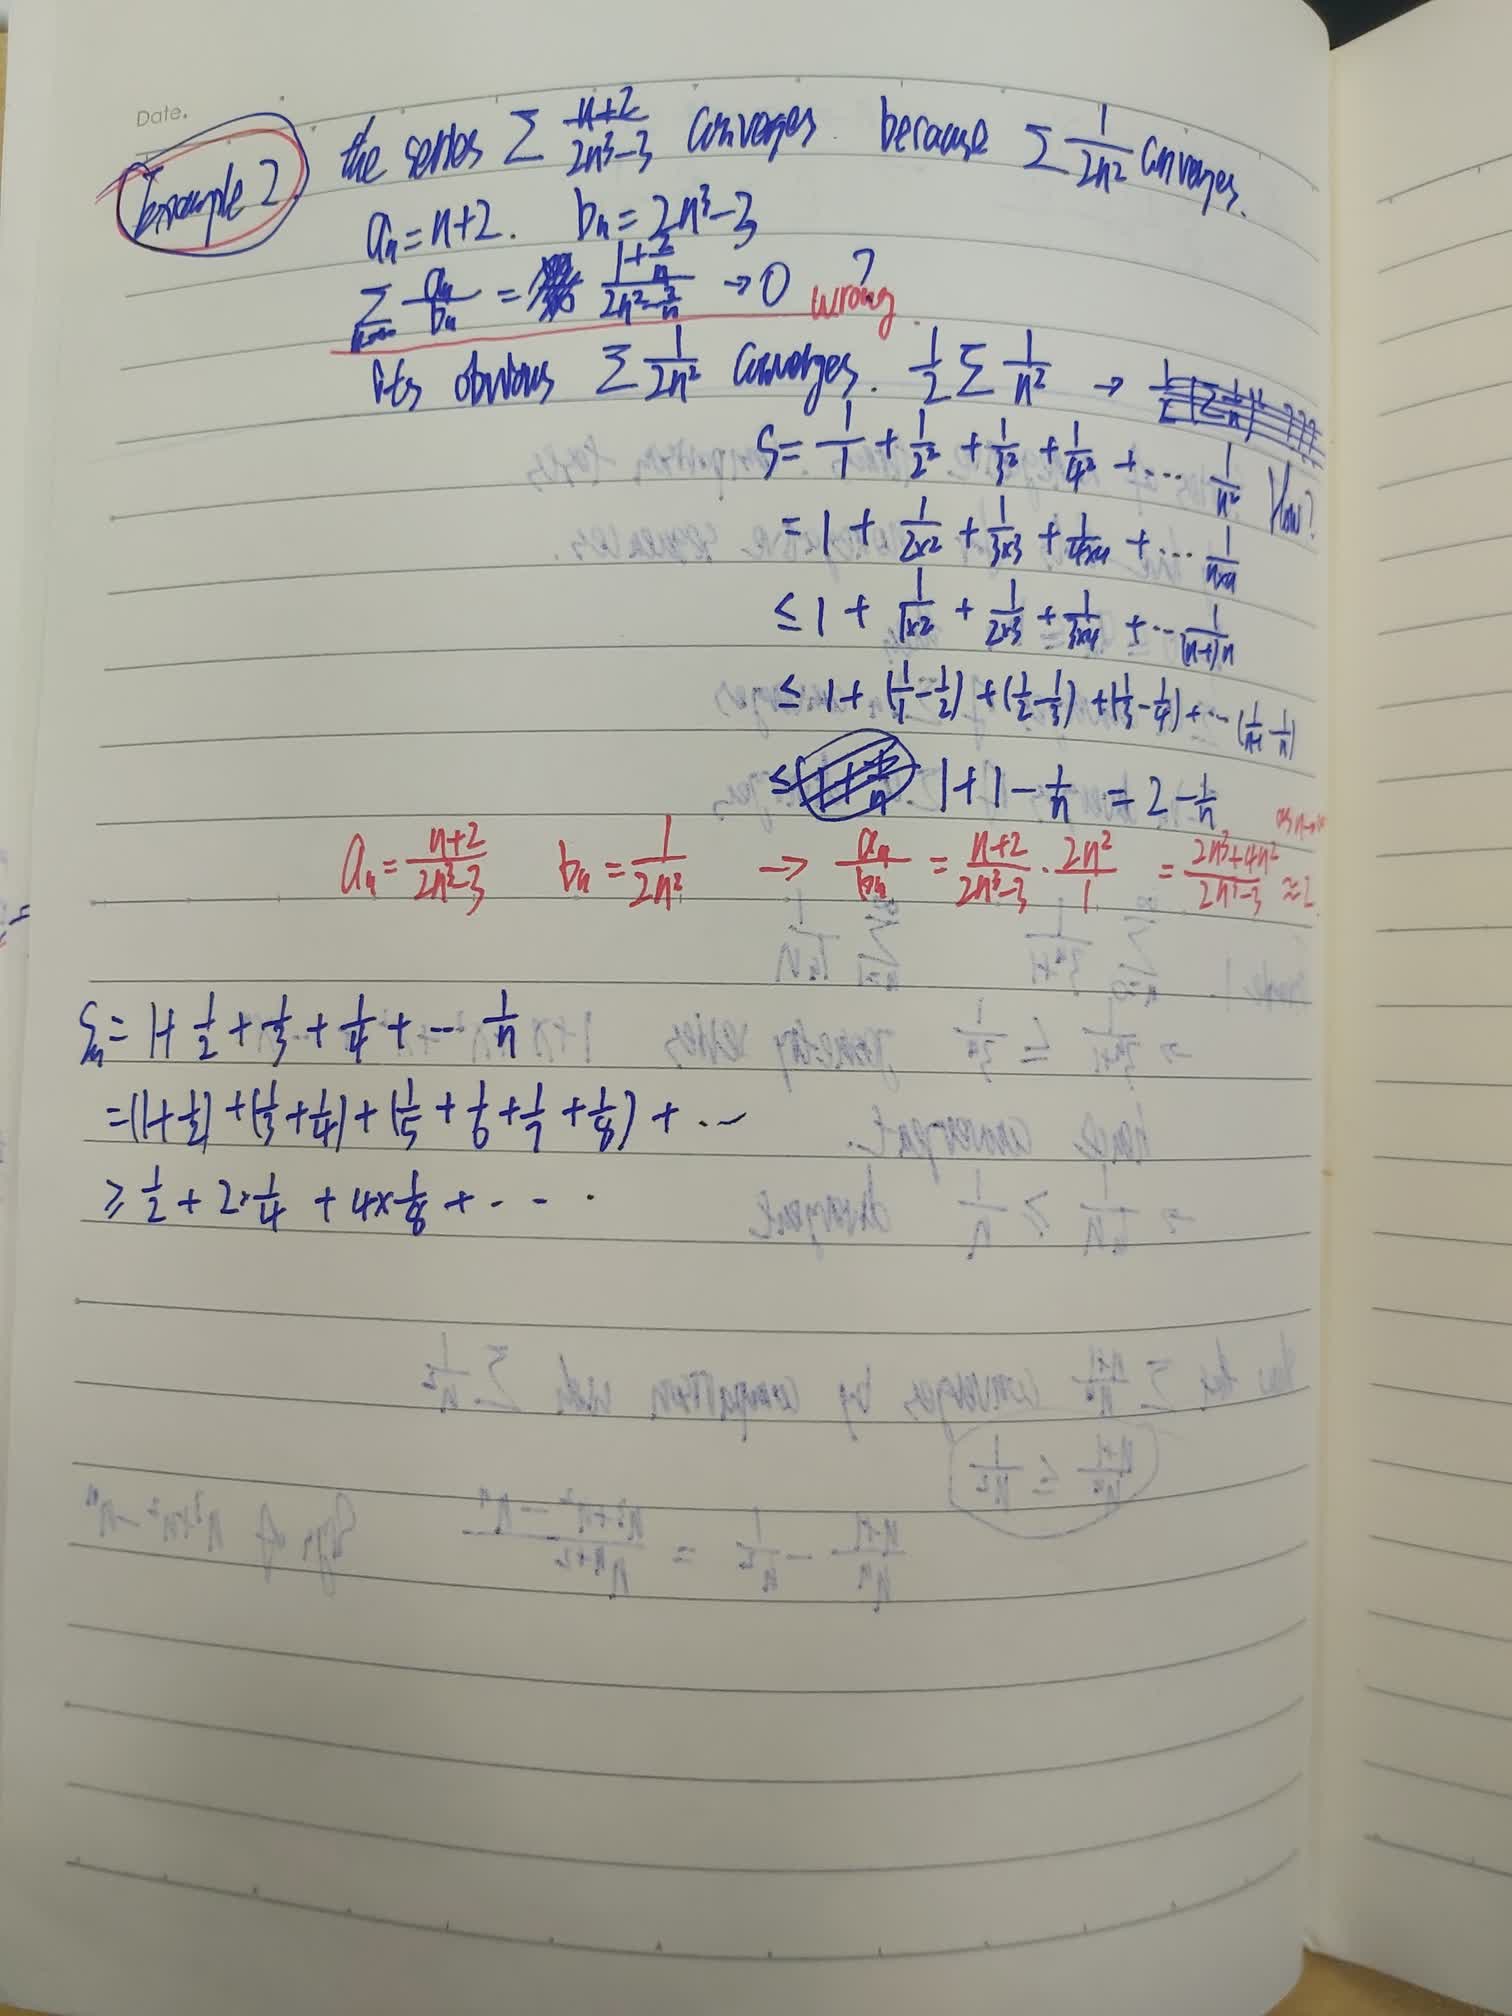 Date.
Example 2. the series Σ (n+2)/(2n³-3) converges. because Σ 1/(2n²) converges.
aₙ = n+2. bₙ = 2n³-3
Σ aₙ/bₙ = (1+2/n)/(2n²-3/n) → 0 ? wrong.
its obvious Σ 1/(2n²) converges. 1/2 Σ 1/n² →
S = 1/1 + 1/2² + 1/3² + 1/4² + ... 1/n² How?
= 1 + 1/(2×2) + 1/(3×3) + 1/(4×4) + ... 1/(n×n)
≤ 1 + 1/(1×2) + 1/(2×3) + 1/(3×4) + ... 1/((n-1)n)
≤ 1 + (1/1 - 1/2) + (1/2 - 1/3) + (1/3 - 1/4) + ... (1/(n-1) - 1/n)
≤ 1+1-1/n = 2-1/n
aₙ = (n+2)/(2n³-3) bₙ = 1/(2n²) → aₙ/bₙ = (n+2)/(2n³-3) · 2n²/1 = (2n³+4n²)/(2n³-3)
Sₙ = 1 + 1/2 + 1/3 + 1/4 + ... 1/n
= (1+1/2) + (1/3+1/4) + (1/5+1/6+1/7+1/8) + ...
≥ 1/2 + 2×1/4 + 4×1/8 + ...